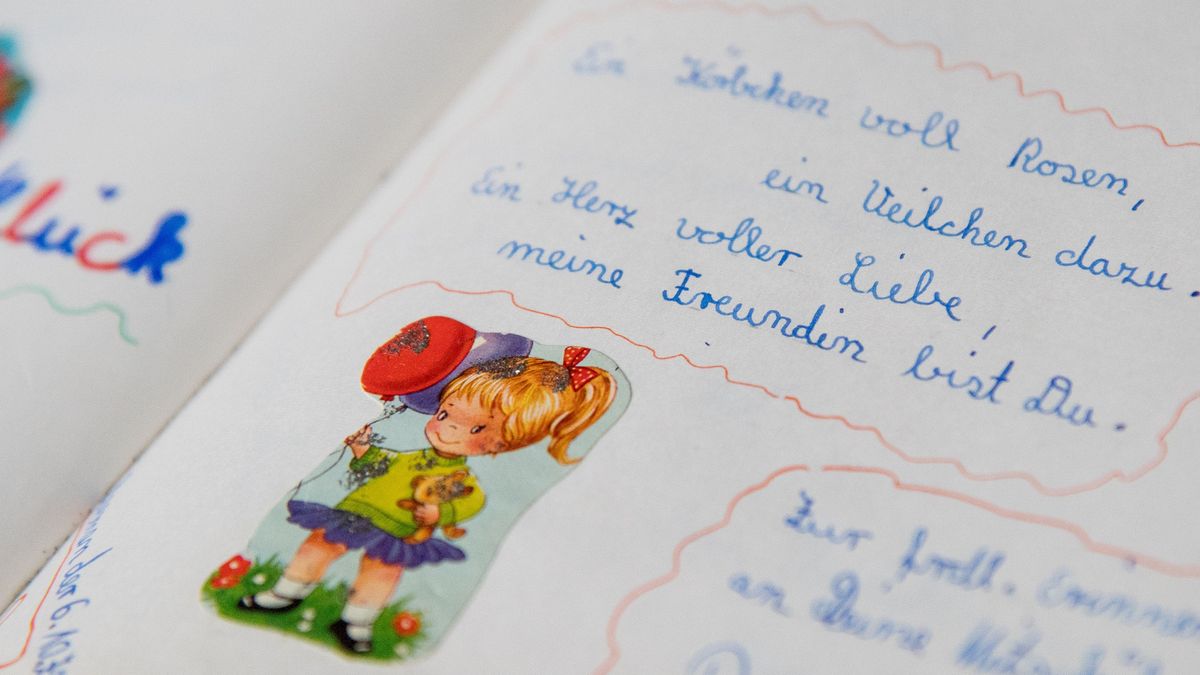 Glück
Ein Körbchen voll Rosen,
ein Veilchen dazu.
Ein Herz voller Liebe,
meine Freundin bist Du.
Zur frdl.
an Deine